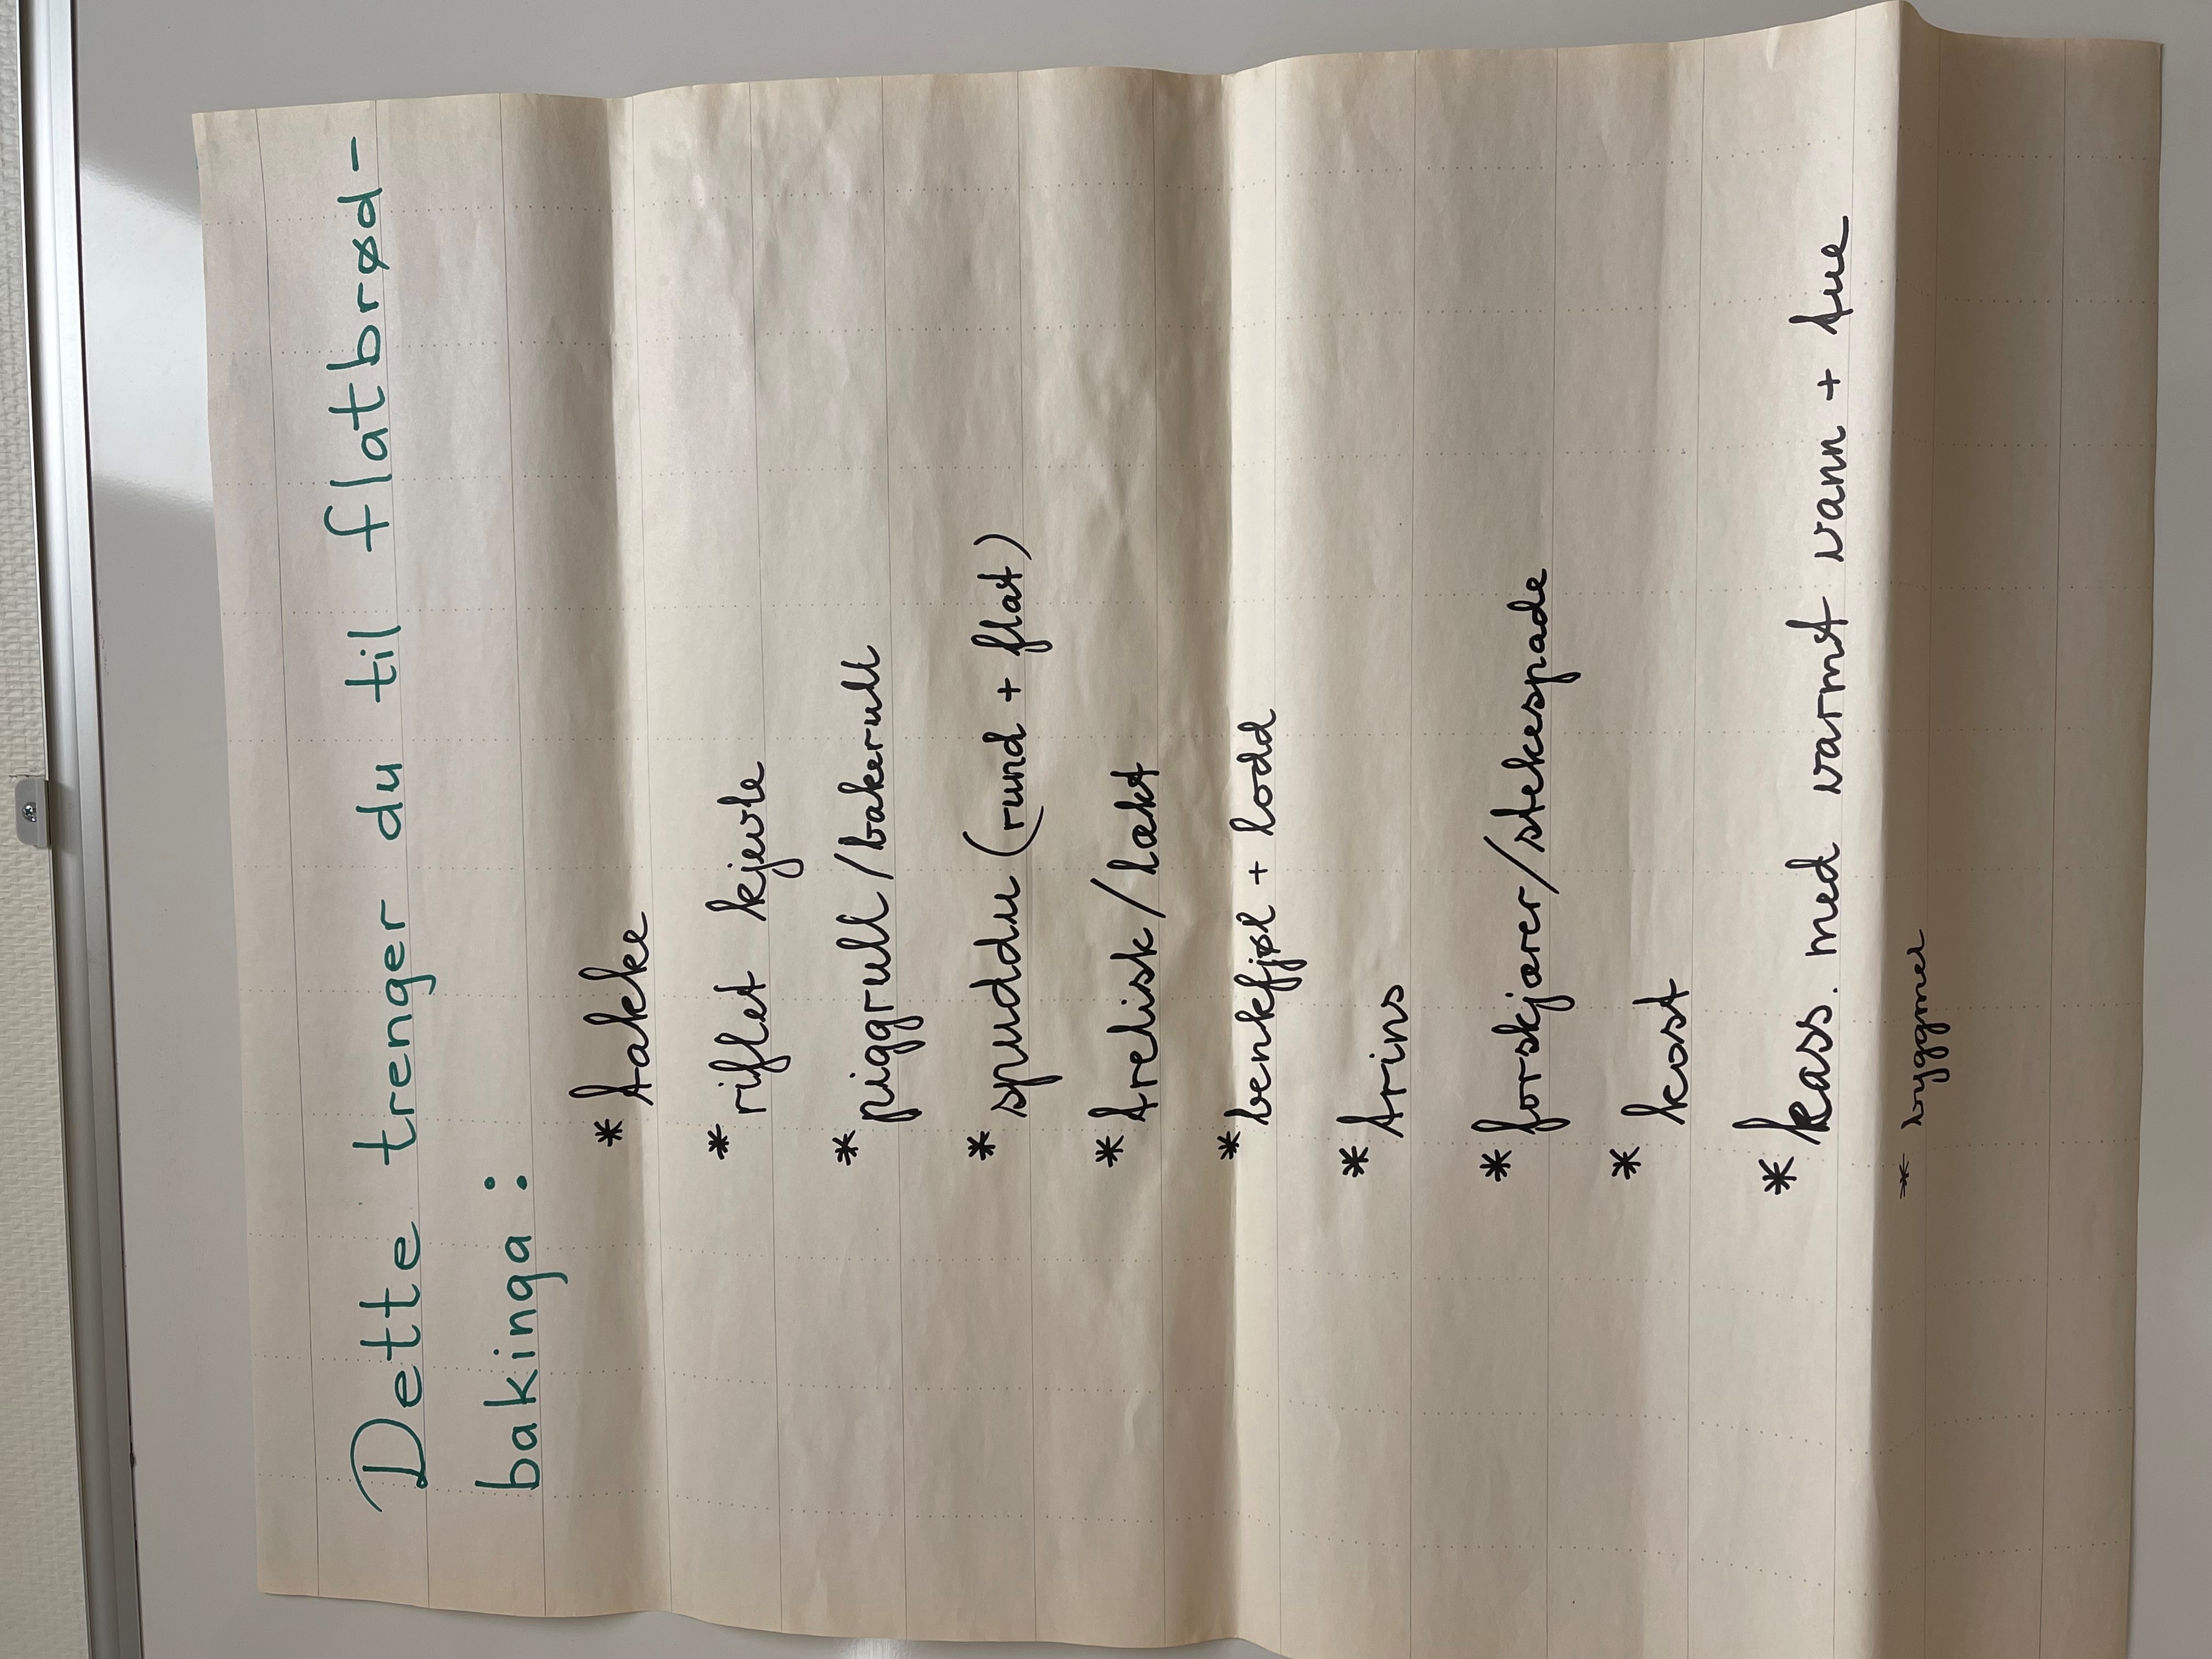 Dette trenger du til flatbrød-
bakinga:
* takke
* riflet kjevle
* piggrull/bakerull
* spuddu (rund + flat)
* trelisk/lekt
* benkfjøl + lodd
* trins
* forskjærer/stekespade
* kost
* kass. med varmt vann + fue
* byggmel